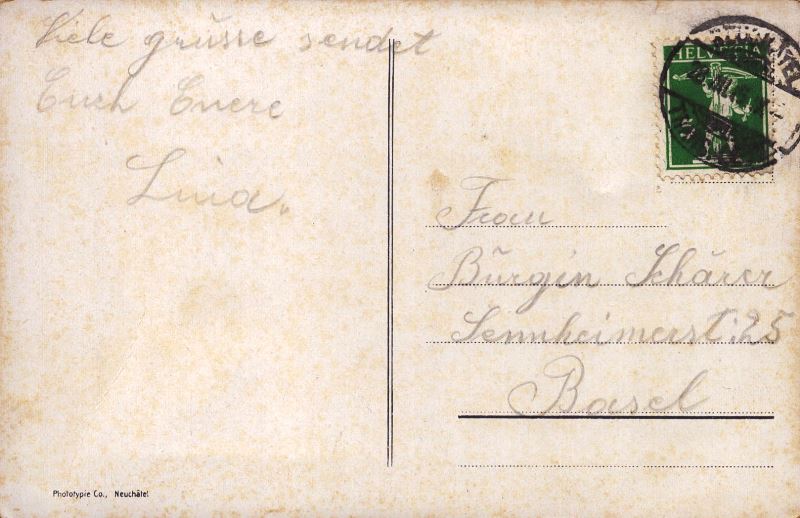 Viele grüsse sendet
Euch Euere
Lina.
HELVETIA
Frau
Bürgin Schärer
Sennheimerst. 25
Basel
Phototypie Co., Neuchâtel